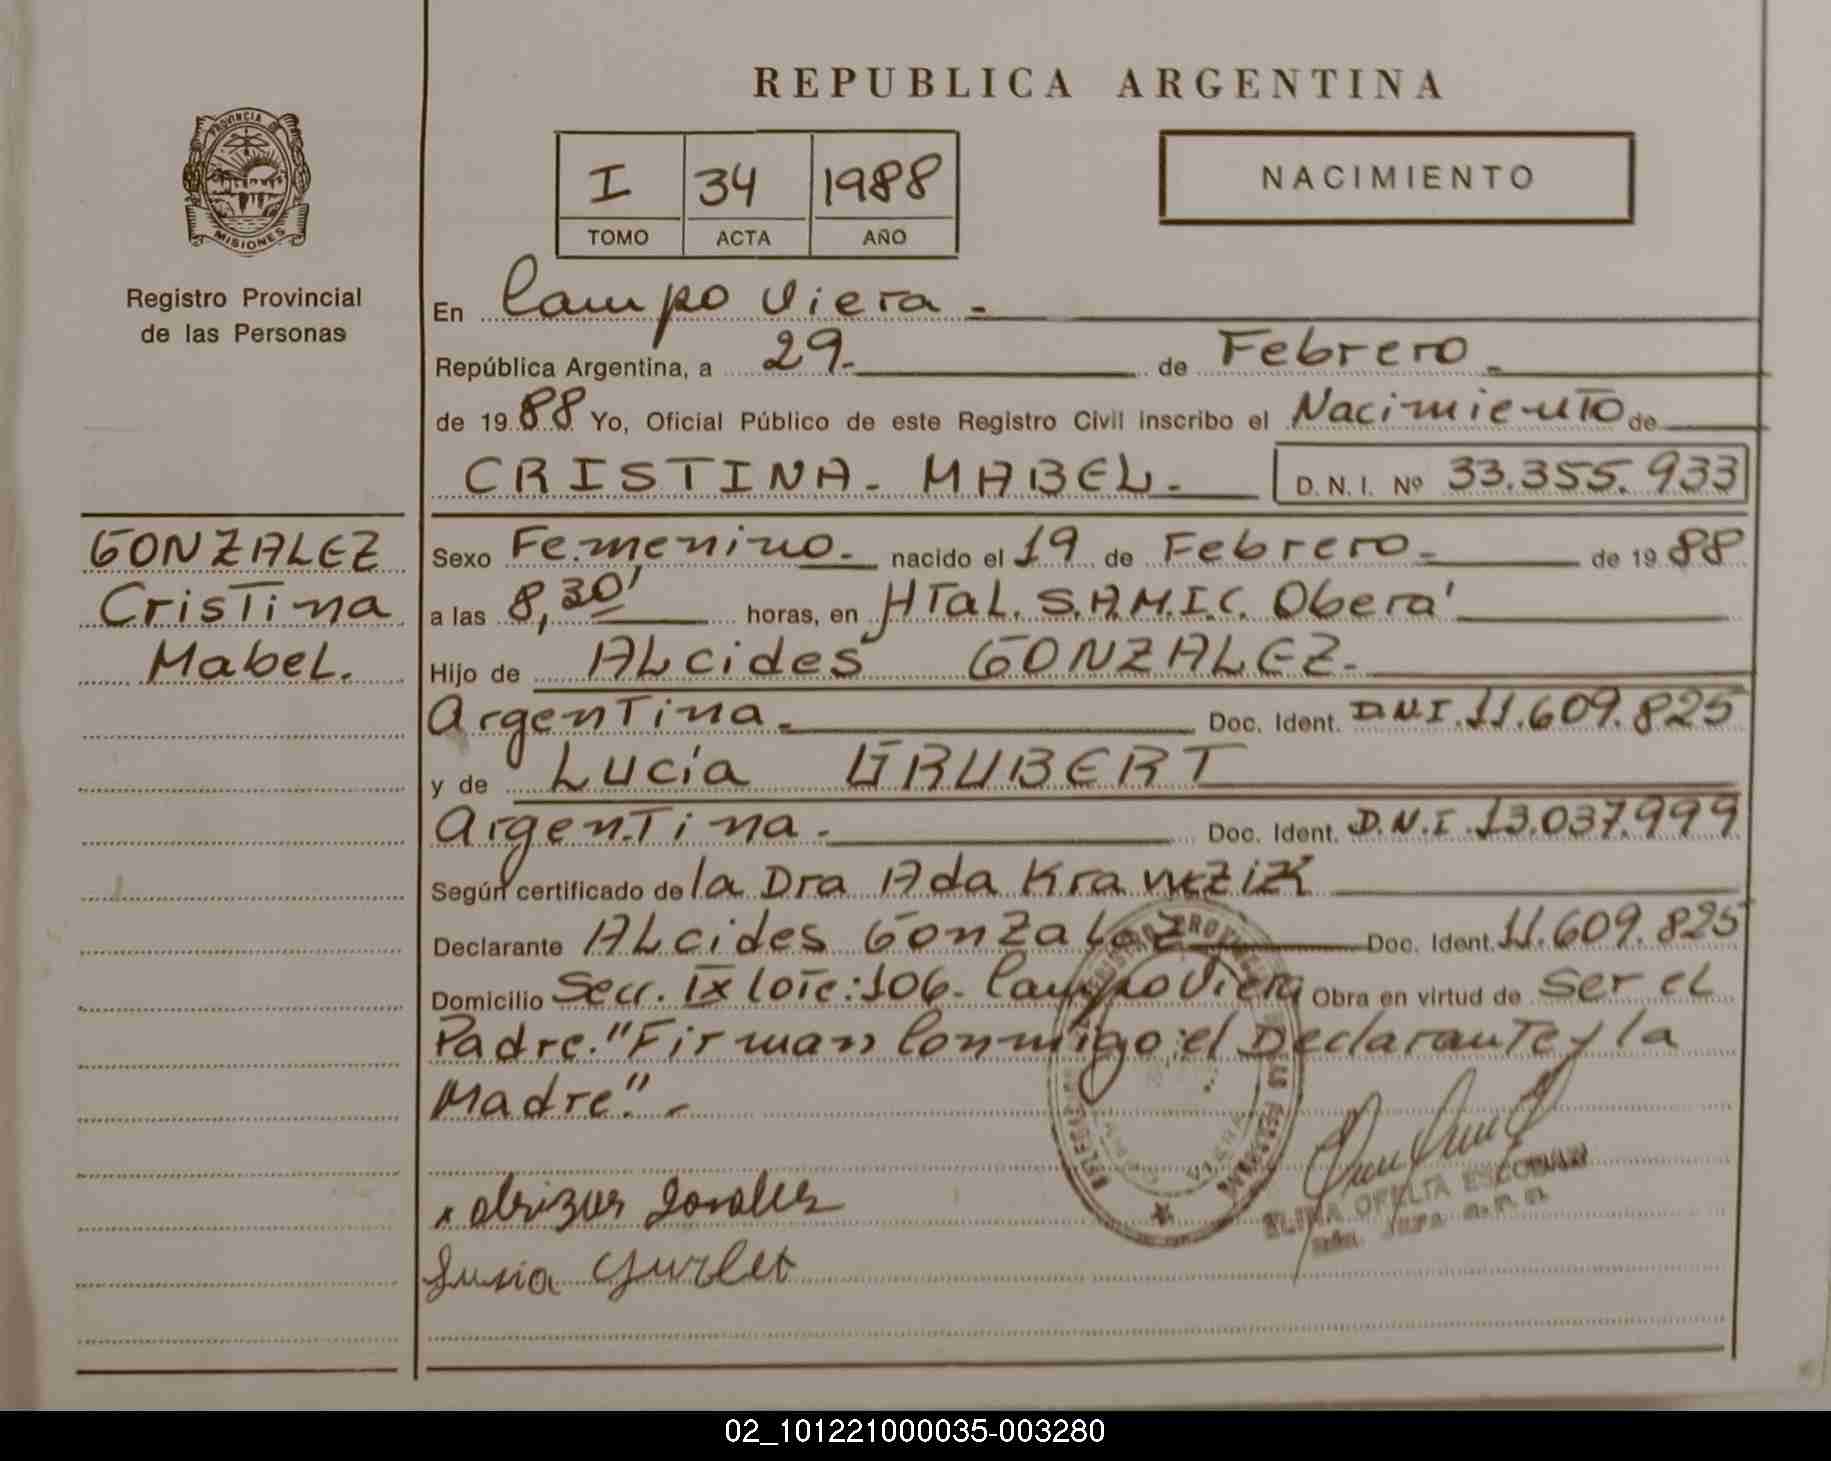 REPUBLICA ARGENTINA
PROVINCIA DE
MISIONES
I 34 1988
TOMO ACTA AÑO
NACIMIENTO
Registro Provincial
de las Personas
En Campo Viera -
República Argentina, a 29. de Febrero
de 1988 Yo, Oficial Público de este Registro Civil inscribo el Nacimiento de
CRISTINA. MABEL. D. N. I. Nº 33.355.933
GONZALEZ
Cristina
Mabel.
Sexo Femenino. nacido el 19 de Febrero. de 1988
a las 8,30' horas, en HTaL. S.A.M.I.C. Oberá
Hijo de ALcides GONZALEZ.
Argentina. Doc. Ident. D.N.I. 11.609.825
y de Lucía GRUBERT
Argentina. Doc. Ident. D.N.I. 13.037.999
Según certificado de la Dra Ada
Declarante ALcides Gonzalez Doc. Ident. 11.609.825
Domicilio Secc. IX lote: 106. Campo Viera Obra en virtud de ser el
Padre. "Firman Conmigo el Declarante y la
Madre". -
ELIDA OFELIA ESCOBAR
02_101221000035-003280